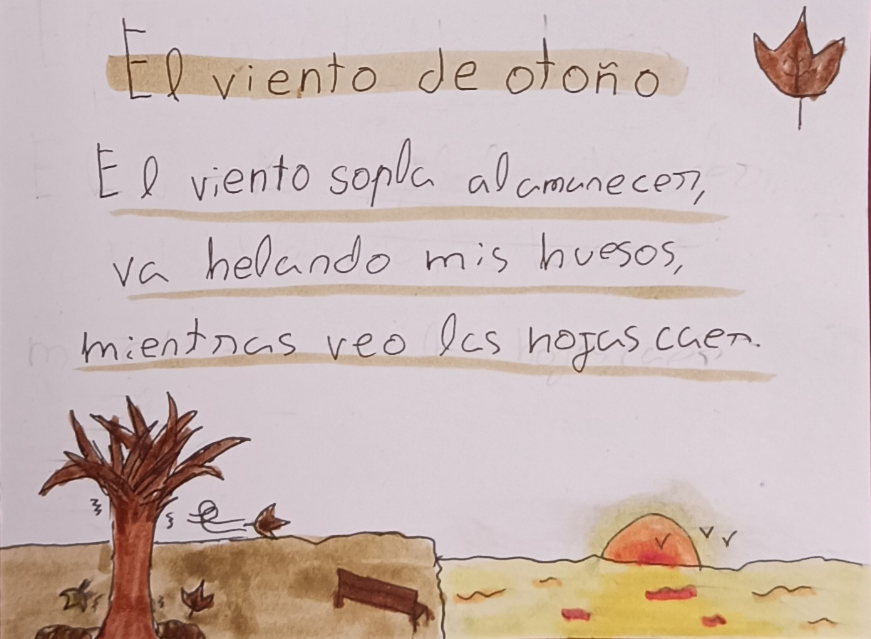 El viento de otoño
El viento sopla al amanecer,
va helando mis huesos,
mientras veo las hojas caer.